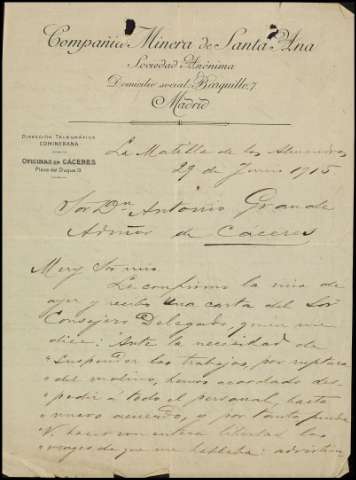 Compañia Minera de Santa Ana
Sociedad Anónima
Domicilio social: Barquillo, 7
Madrid
DIRECCIÓN TELEGRÁFICA
COMINERANA
OFICINAS EN CÁCERES
Plaza del Duque 13
La Matilla de los Almendros
29 de Junio 1915
Sor Dn Antonio Grande
Admor de Cáceres
Muy Sr mio
Le confirmo la mia de
ayer y recibo una carta del Sor
Consejero Delegado, quien me
dice: "Ante la necesidad de
"suspender los trabajos, por ruptura
"del molino, hemos acordado des-
"pedir á todo el personal, hasta
"nuevo acuerdo, y por tanto puede
V. hacer con entera libertad los
de que me hablaba: advirtien